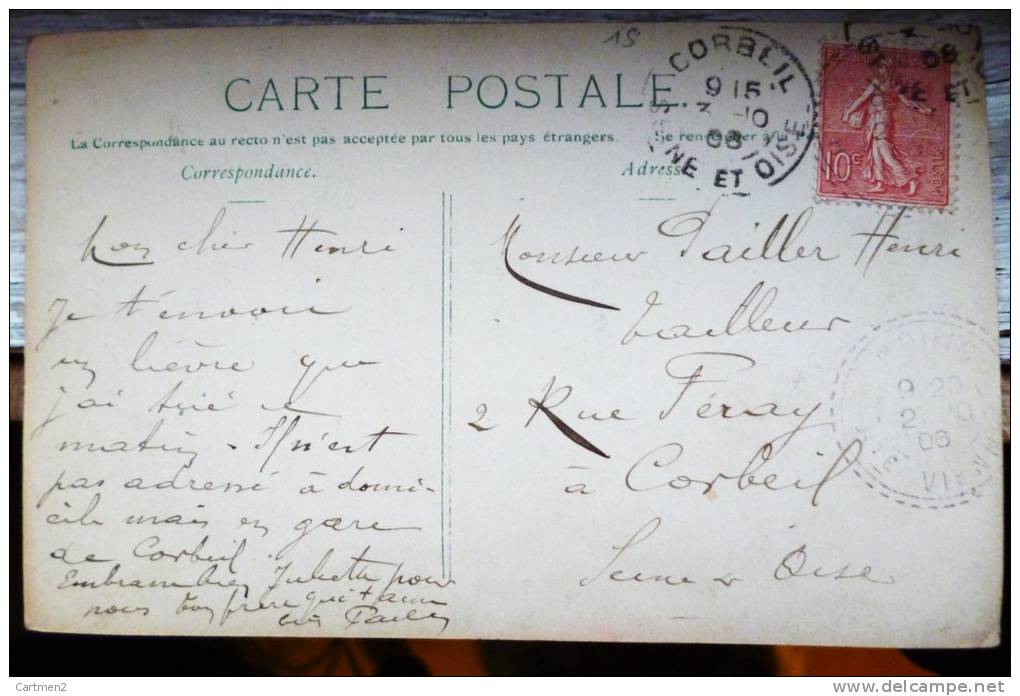 15
CARTE POSTALE
La Correspondance au recto n'est pas acceptée par tous les pays étrangers. Se renseigner à la
Correspondance.
Adresse
CORBEIL
9 15
3 -10
06
SEINE ET OISE
10c
Mon cher Henri
Je t'envoie
un lièvre que
j'ai tué ce
matin - Il n'est
pas adressé à domi-
cile mais en gare
de Corbeil.
Embrasse bien Juliette pour
nous Ton frère qui t'aime
Monsieur Pailler Henri
Tailleur
2 Rue Féray
à Corbeil
Seine & Oise
9 20
2 10
06
VIENNE
Cartmen2
www.delcampe.net